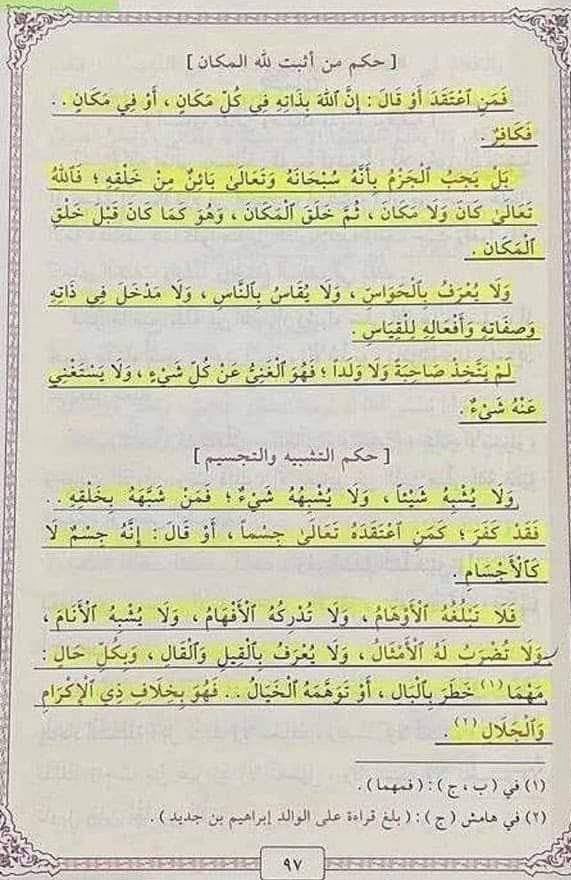 [ حكم من أثبت لله المكان ]
فَمَنِ ٱعْتَقَدَ أَوْ قَالَ : إِنَّ ٱللهَ بِذَاتِهِ فِي كُلِّ مَكَانٍ ، أَوْ فِي مَكَانٍ . .
فَكَافِرٌ .
بَلْ يَجِبُ ٱلْجَزْمُ بِأَنَّهُ سُبْحَانَهُ وَتَعَالَىٰ بَائِنٌ مِنْ خَلْقِهِ ؛ فَٱللهُ
تَعَالَىٰ كَانَ وَلَا مَكَانَ ، ثُمَّ خَلَقَ ٱلْمَكَانَ ، وَهُوَ كَمَا كَانَ قَبْلَ خَلْقِ
ٱلْمَكَانِ .
وَلَا يُعْرَفُ بِٱلْحَوَاسِّ ، وَلَا يُقَاسُ بِٱلنَّاسِ ، وَلَا مَدْخَلَ فِي ذَاتِهِ
وَصِفَاتِهِ وَأَفْعَالِهِ لِلْقِيَاسِ .
لَمْ يَتَّخِذْ صَاحِبَةً وَلَا وَلَداً ؛ فَهُوَ ٱلْغَنِيُّ عَنْ كُلِّ شَيْءٍ ، وَلَا يَسْتَغْنِي
عَنْهُ شَيْءٌ .
[ حكم التشبيه والتجسيم ]
وَلَا يُشْبِهُ شَيْئاً ، وَلَا يُشْبِهُهُ شَيْءٌ ؛ فَمَنْ شَبَّهَهُ بِخَلْقِهِ . .
فَقَدْ كَفَرَ ؛ كَمَنِ ٱعْتَقَدَهُ تَعَالَىٰ جِسْماً ، أَوْ قَالَ : إِنَّهُ جِسْمٌ لَا
كَٱلْأَجْسَامِ .
فَلَا تَبْلُغُهُ ٱلْأَوْهَامُ ، وَلَا تُدْرِكُهُ ٱلْأَفْهَامُ ، وَلَا يُشْبِهُ ٱلْأَنَامَ ،
وَلَا تُضْرَبُ لَهُ ٱلْأَمْثَالُ ، وَلَا يُعْرَفُ بِٱلْقِيلِ وَٱلْقَالِ ، وَبِكُلِّ حَالٍ :
مَهْمَا (١) خَطَرَ بِٱلْبَالِ ، أَوْ تَوَهَّمَهُ ٱلْخَيَالُ . . فَهُوَ بِخِلَافِ ذِي ٱلْإِكْرَامِ
وَٱلْجَلَالِ (٢) .
(١) في ( ب ، ج ) : ( فمهما ) .
(٢) في هامش ( ج ) : ( بلغ قراءة على الوالد إبراهيم بن جديد ) .
٩٧